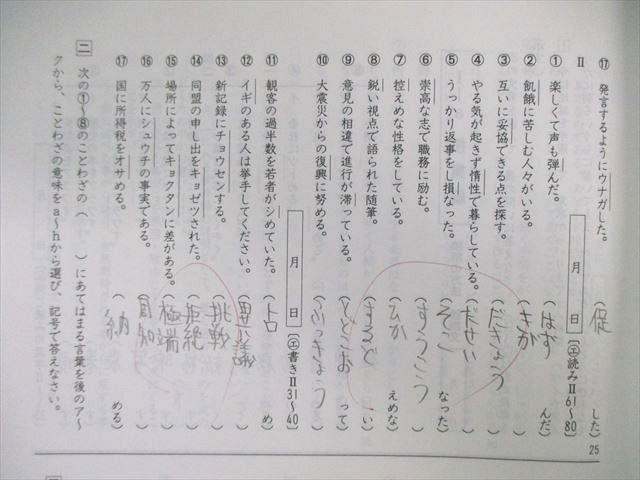 ⑰ 発言するようにウナガした。（促した）
Ⅱ 月 日 〔㋓読みⅡ61〜80〕
① 楽しくて声も弾んだ。（はずんだ）
② 飢餓に苦しむ人々がいる。（きが）
③ 互いに妥協できる点を探す。（だきょう）
④ やる気が起きず惰性で暮らしている。（だせい）
⑤ うっかり返事をし損なった。（そこなった）
⑥ 崇高な志で職務に励む。（すうこう）
⑦ 控えめな性格をしている。（ひかえめな）
⑧ 鋭い視点で語られた随筆。（するどい）
⑨ 意見の相違で進行が滞っている。（とどこおって）
⑩ 大震災からの復興に努める。（ふっきょう）
月 日 〔㋓書きⅡ31〜40〕
⑪ 観客の過半数を若者がシめていた。（占め）
⑫ イギのある人は挙手してください。（異議）
⑬ 新記録にチョウセンする。（挑戦）
⑭ 同盟の申し出をキョゼツされた。（拒絶）
⑮ 場所によってキョクタンに差がある。（極端）
⑯ 万人にシュウチの事実である。（周知）
⑰ 国に所得税をオサめる。（納める）
二 次の①〜⑧のことわざの（ ）にあてはまる言葉を後のア〜
クから、ことわざの意味をa〜hから選び、記号で答えなさい。
25